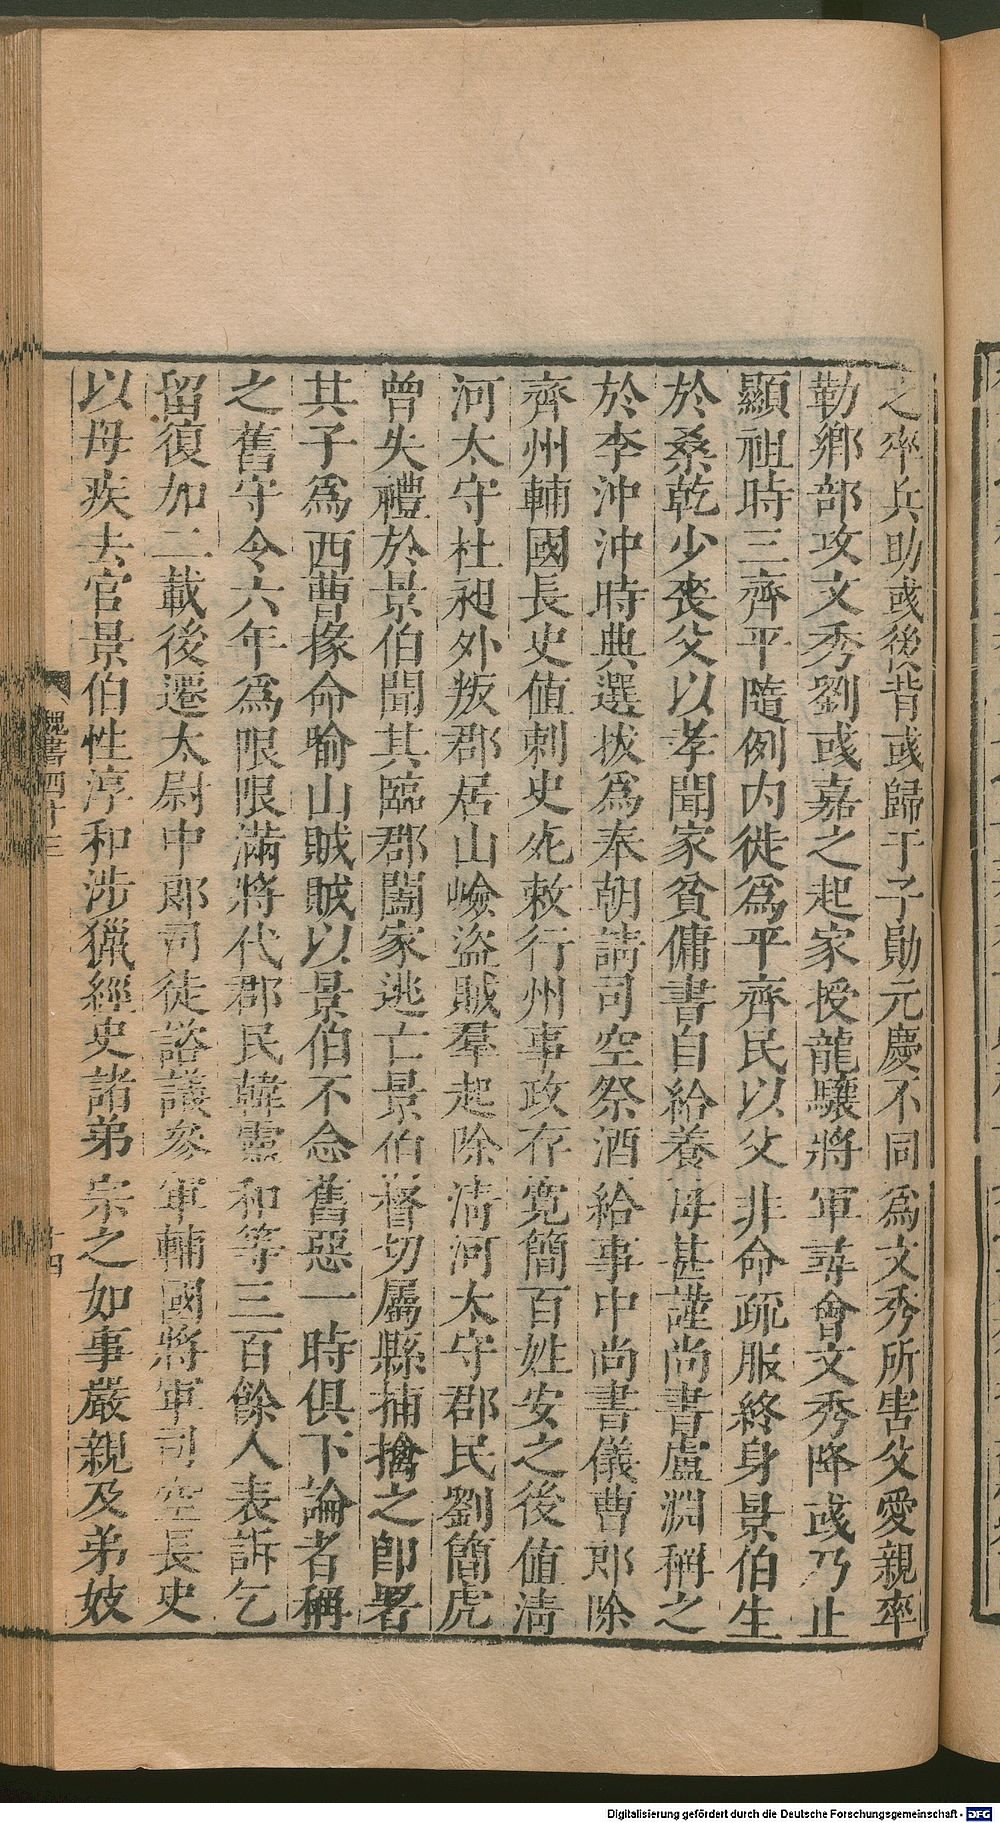 之率兵助彧後背彧歸于子勛元慶不同爲文秀所害父愛親率
勒鄉部攻文秀劉彧嘉之起家授龍驤將軍尋會文秀降彧乃止
顯祖時三齊平隨例内徙爲平齊民以父非命疏服終身景伯生
於桑乾少喪父以孝聞家貧傭書自給養母甚謹尚書盧淵稱之
於李沖沖時典選拔爲奉朝請司空祭酒給事中尚書儀曹郎除
齊州輔國長史値刺史死敕行州事政存寛簡百姓安之後値淸
河太守杜昶外叛郡居山嶮盜賊羣起除淸河太守郡民劉簡虎
曾失禮於景伯聞其臨郡闔家逃亡景伯督切屬縣捕擒之即署
其子爲西曹掾命喻山賊賊以景伯不念舊惡一時俱下論者稱
之舊守令六年爲限限滿將代郡民韓靈和等三百餘人表訴乞
留復加二載後遷太尉中郎司徒諮議參軍輔國將軍司空長史
以母疾去官景伯性淳和涉獵經史諸弟宗之如事嚴親及弟妓
魏書四十三
十四
Digitalisierung gefördert durch die Deutsche Forschungsgemeinschaft - DFG